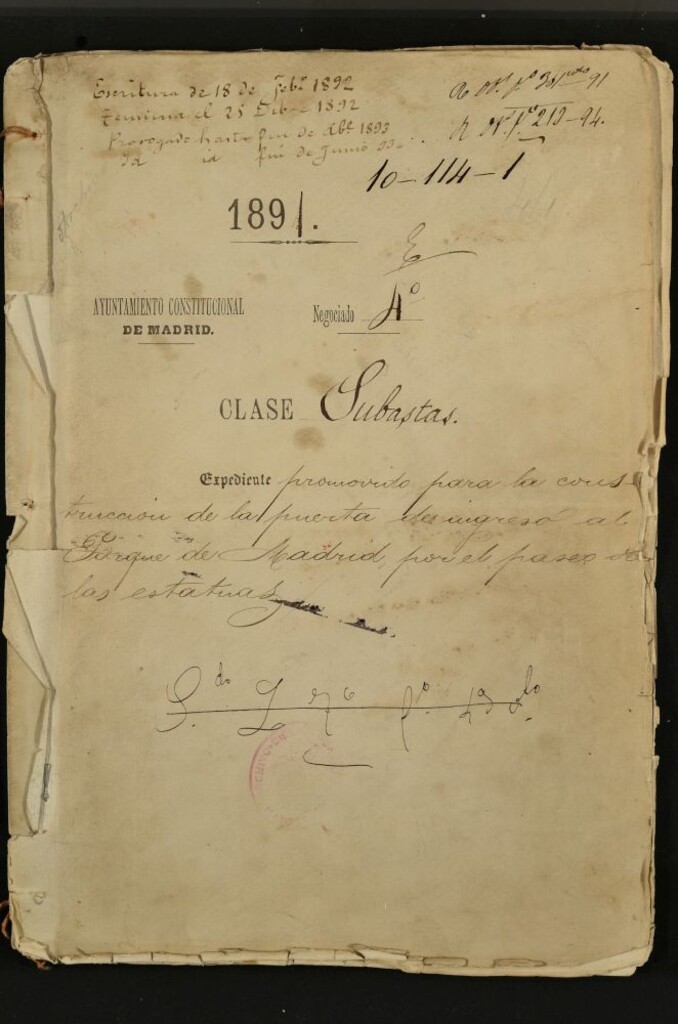 Escritura de 18 de Feb.º 1892
Termina el 25 Dibre 1892
Prorrogado hasta fin de Abl 1893
Id id fin de Junio 93
91
219-94.
10-114-1
1891.
AYUNTAMIENTO CONSTITUCIONAL
DE MADRID.
Negociado 4º
CLASE Subastas.
Expediente promovido para la cons-
truccion de la puerta de ingreso al
Parque de Madrid, por el paseo de
las estatuas